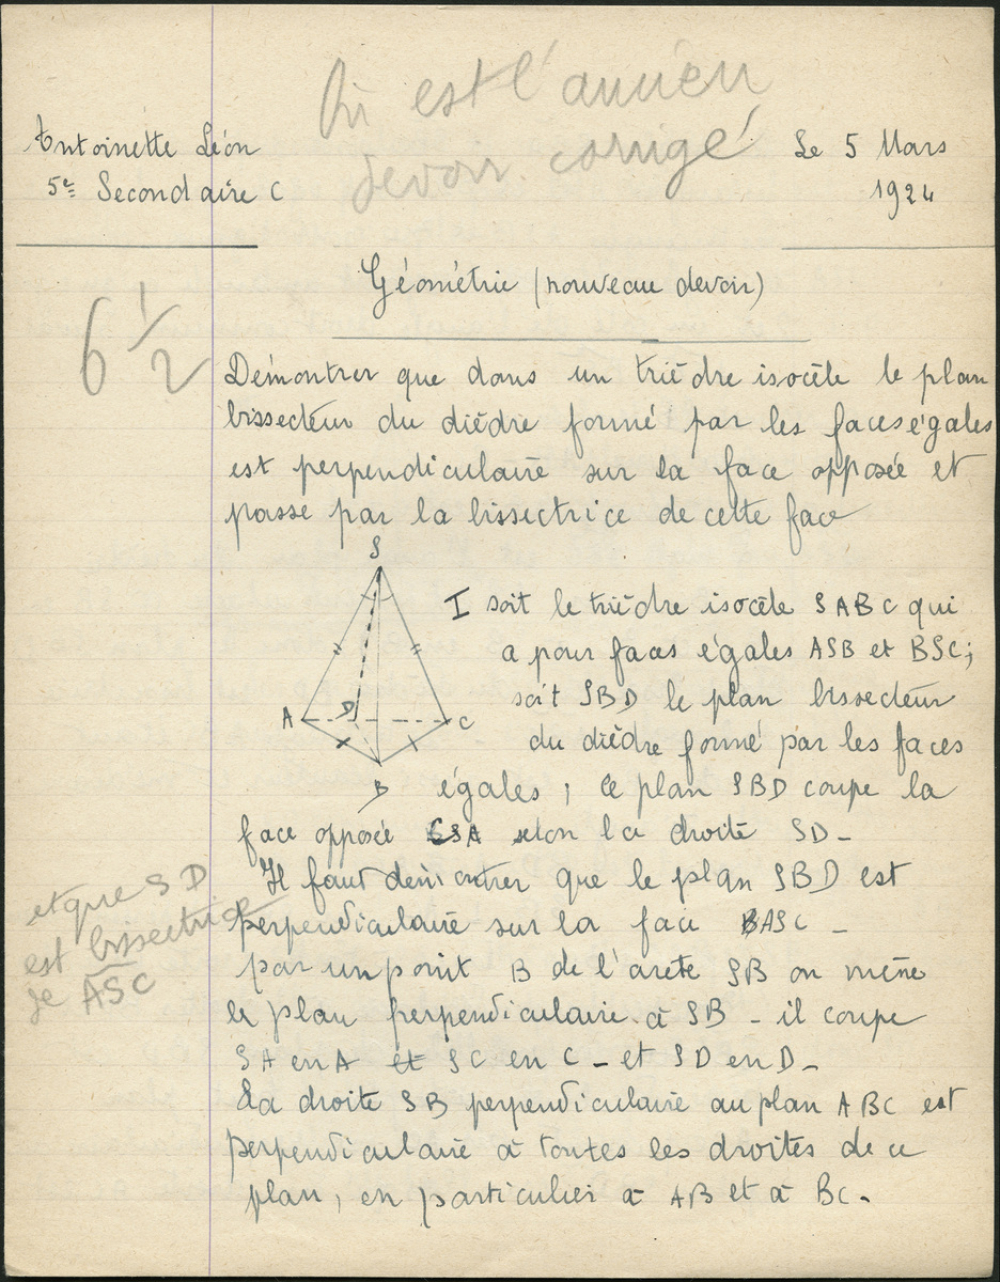 Où est l'ancien
devoir corrigé!
Antoinette Léon
5e Secondaire C
Le 5 Mars
1924
Géométrie (nouveau devoir)
6 1/2
Démontrer que dans un trièdre isocèle le plan
bissecteur du dièdre formé par les faces égales
est perpendiculaire sur la face opposée et
passe par la bissectrice de cette face
S
A
D
C
B
I soit le trièdre isocèle SABC qui
a pour faces égales ASB et BSC;
soit SBD le plan bissecteur
du dièdre formé par les faces
égales ; ce plan SBD coupe la
face opposée CSA selon la droite SD-
Il faut démontrer que le plan SBD est
perpendiculaire sur la face ASC -
et que SD
est bissectrice
de ASC
par un point B de l'arete SB on mène
le plan perpendiculaire à SB - il coupe
SA en A et SC en C - et SD en D -
La droite SB perpendiculaire au plan ABC est
perpendiculaire à toutes les droites de ce
plan, en particulier à AB et à BC.